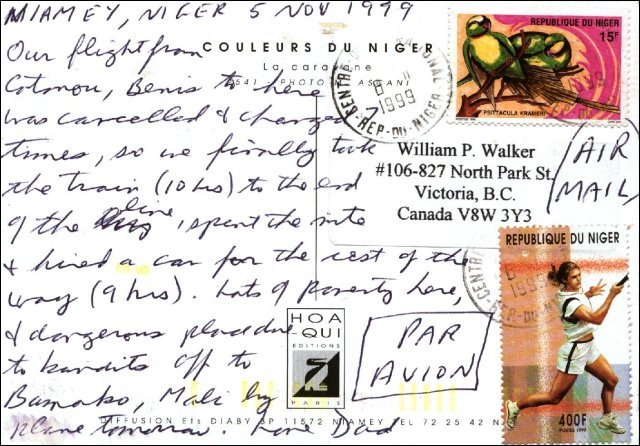 MIAMEY, NIGER 5 NOV 1999
Our flight from
Cotonou, Benin to here
was cancelled & changed 7
times, so we finally took
the train (10 hrs) to the end
of the line, spent the nite
& hired a car for the rest of the
way (9 hrs). Lots of poverty here,
& dangerous place due
to bandits off to
Bamako, Mali by
plane tomorrow Love Dad
COULEURS DU NIGER
La caravane
PHOTO
HOA
QUI
EDITIONS
DIFFUSION Ets DIABY BP 11572 NIAMEY TEL 72 25 42
REPUBLIQUE DU NIGER
15F
PSITTACULA KRAMERI
6 11
1999
REP-DU-NIGER
William P. Walker
#106-827 North Park St.
Victoria, B.C.
Canada V8W 3Y3
AIR
MAIL
REPUBLIQUE DU NIGER
400F
POSTES 1998
CENTRE
1999
REP-DU-NI
PAR
AVION